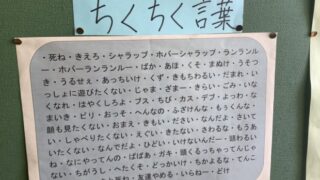 ちくちく言葉
・死ね・きえろ・シャラップ・ホバーシャラップ・ランランル
ー・ホバーランランルー・ばか・あほ・くそ・まぬけ・うそつ
き・うるせぇ・あっちいけ・くず・きもちわるい・だまれ・い
っしょに遊びたくない・じゃま・ざまー・きらい・ごみ・いな
くなれ・はやくしろよ・ブス・ちび・カス・デブ・よっわ・な
まいき・ビリ・おっそ・へんなの・ふざけんな・もうくんな・
顔も見たくない・おまえ・きもい・ださい・なんだよ・さいて
い・しゃべりたくない・えぐい・きたない・さわるな・もうあ
いたくない・なんでだよ・ひどい・いけないんだー・頭わるい
な・なにやってんの・ばばあ・ガキ・頭くるっちゃってんじゃ
ない・ちがうし・へたくそ・どっかいけ・ちかよるな・てんこ
死ね・友達やめる・いらねー・どけ